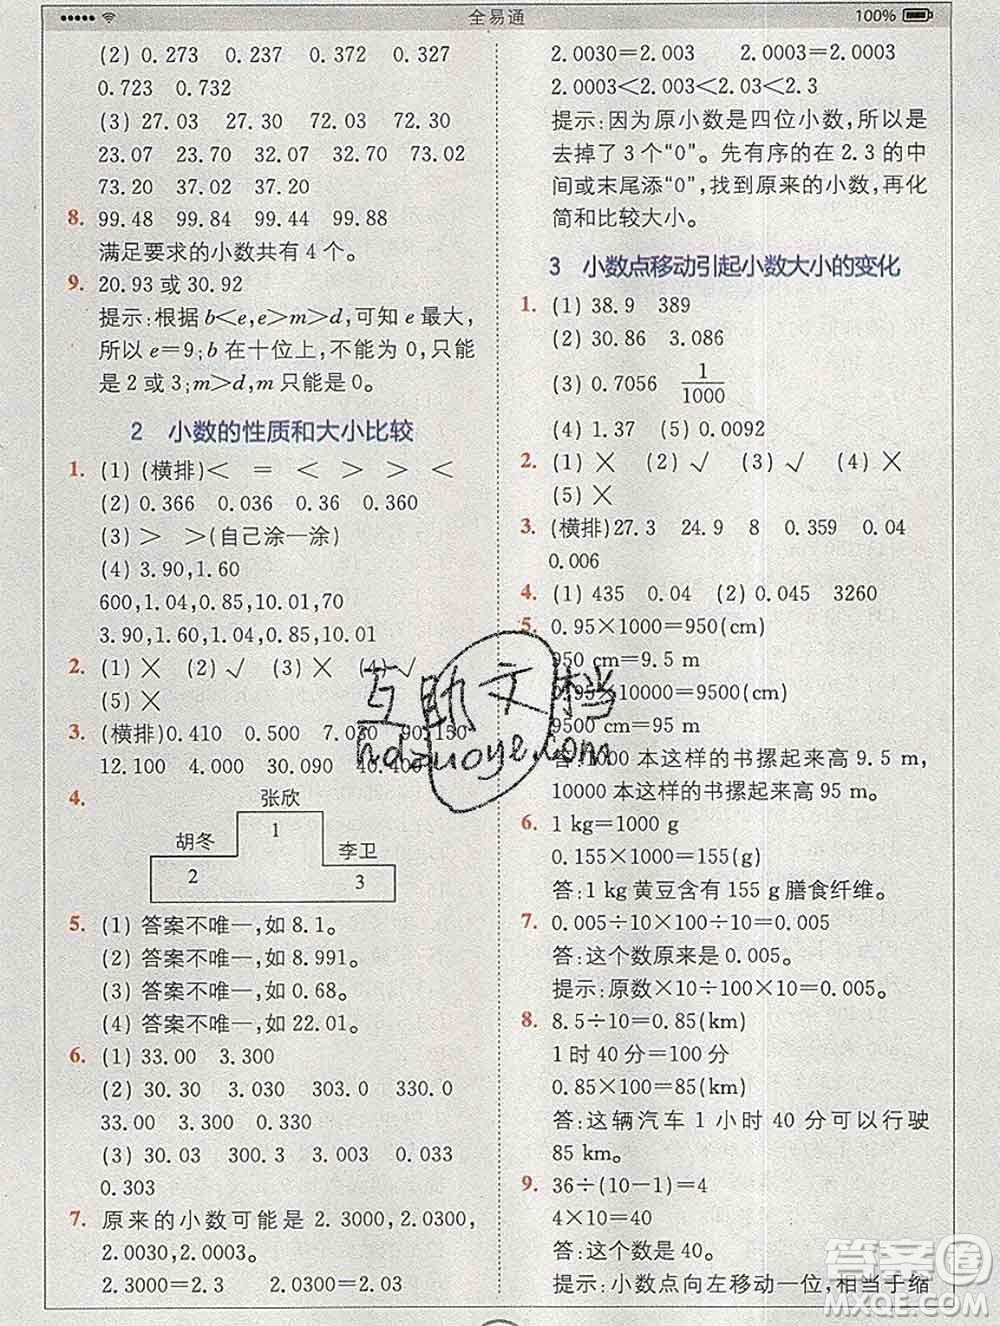 全易通
100%
(2) 0.273 0.237 0.372 0.327
0.723 0.732
(3) 27.03 27.30 72.03 72.30
23.07 23.70 32.07 32.70 73.02
73.20 37.02 37.20
8. 99.48 99.84 99.44 99.88
满足要求的小数共有 4 个。
9. 20.93 或 30.92
提示:根据 b<e,e>m>d,可知 e 最大,
所以 e=9;b 在十位上,不能为 0,只能
是 2 或 3;m>d,m 只能是 0。
2 小数的性质和大小比较
1. (1) (横排)< = < > > <
(2) 0.366 0.036 0.36 0.360
(3) > >(自己涂一涂)
(4) 3.90,1.60
600,1.04,0.85,10.01,70
3.90,1.60,1.04,0.85,10.01
2. (1) × (2) √ (3) × (4) √
(5) ×
3. (横排)0.410 0.500 7.030 90.150
12.100 4.000 30.090 40.400
4.
张欣
胡冬 1 李卫
2 3
5. (1) 答案不唯一,如 8.1。
(2) 答案不唯一,如 8.991。
(3) 答案不唯一,如 0.68。
(4) 答案不唯一,如 22.01。
6. (1) 33.00 3.300
(2) 30.30 3.030 303.0 330.0
33.00 3.300
(3) 30.03 300.3 3.003 0.033
0.303
7. 原来的小数可能是 2.3000,2.0300,
2.0030,2.0003。
2.3000=2.3 2.0300=2.03
2.0030=2.003 2.0003=2.0003
2.0003<2.003<2.03<2.3
提示:因为原小数是四位小数,所以是
去掉了 3 个“0”。先有序的在 2.3 的中
间或末尾添“0”,找到原来的小数,再化
简和比较大小。
3 小数点移动引起小数大小的变化
1. (1) 38.9 389
(2) 30.86 3.086
(3) 0.7056 1/1000
(4) 1.37 (5) 0.0092
2. (1) × (2) √ (3) √ (4) ×
(5) ×
3. (横排)27.3 24.9 8 0.359 0.04
0.006
4. (1) 435 0.04 (2) 0.045 3260
5. 0.95×1000=950(cm)
950 cm=9.5 m
0.95×10000=9500(cm)
9500 cm=95 m
答:1000 本这样的书摞起来高 9.5 m,
10000 本这样的书摞起来高 95 m。
6. 1 kg=1000 g
0.155×1000=155(g)
答:1 kg 黄豆含有 155 g 膳食纤维。
7. 0.005÷10×100÷10=0.005
答:这个数原来是 0.005。
提示:原数×10÷100×10=0.005。
8. 8.5÷10=0.85(km)
1 时 40 分=100 分
0.85×100=85(km)
答:这辆汽车 1 小时 40 分可以行驶
85 km。
9. 36÷(10-1)=4
4×10=40
答:这个数是 40。
提示:小数点向左移动一位,相当于缩
互助文档
hdzuoye.com
答案圈
MXQE.COM